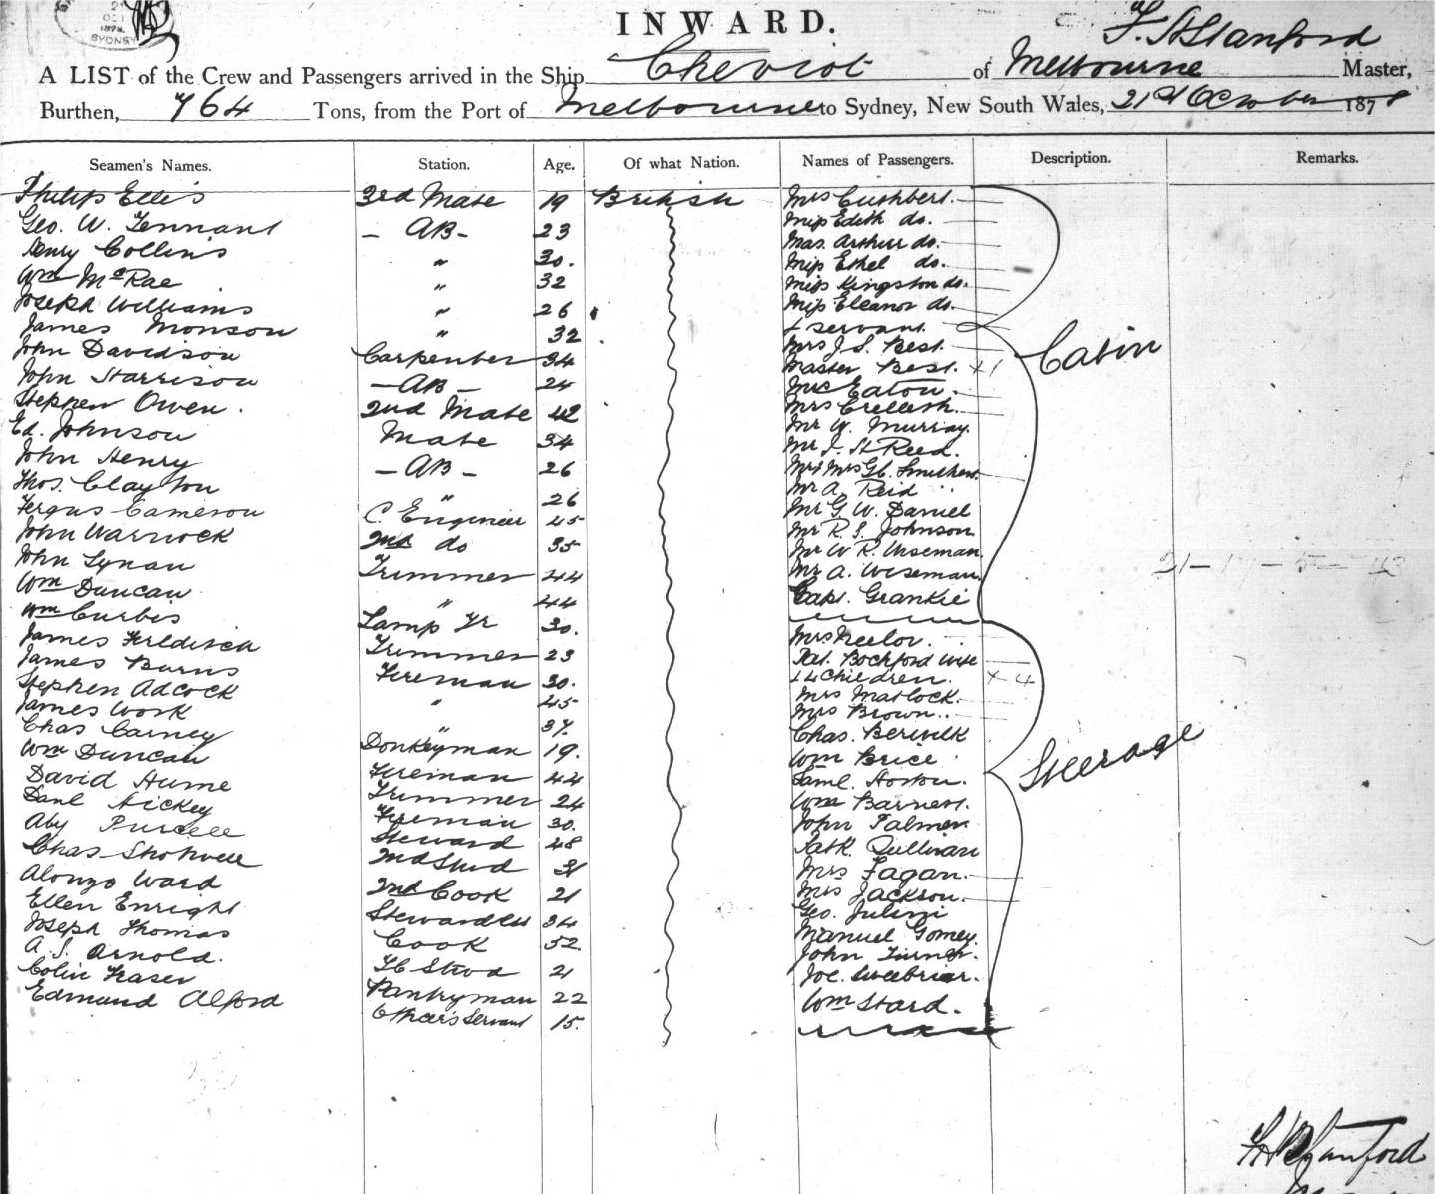 21
OCT
1878
SYDNEY
INWARD.
Stanford
A LIST of the Crew and Passengers arrived in the Ship Cheviot of Melbourne Master,
Burthen, 764 Tons, from the Port of Melbourne to Sydney, New South Wales, 21st October 1878
Seamen's Names. Station. Age. Of what Nation. Names of Passengers. Description. Remarks.
Philip Ellis 3rd Mate 19 British Mrs Cuthbert.
Geo. W. Tennant - AB - 23 Miss Edith do.
Henry Collins " 30. Mas. Arthur do.
Wm McRae " 32 Miss Ethel do.
Joseph Williams " 26 Miss Kingston do.
James Monson " 32 Miss Eleanor do.
John Davidson Carpenter 34 & servant.
John Harrison - AB - 24 Mrs J. S. Best.
Stephen Owen. 2nd Mate 42 Master Best. x 1 Cabin
Ed. Johnson Mate 34 Eaton.
John Henry - AB - 26 Mrs
Thos. Clayton " 26 Mr W. Murray.
Fergus Cameron C. Engineer 45 Mr J. H Reed.
John Warnock 2nd do 35 Mr & Mrs
John Lynau Trimmer 44 Mr A. Reid
Wm Duncan " 44 Mr G. W. Daniel
Wm Curtis Lamp Tr 30. Mr R. S. Johnson
James Trimmer 23 Mr W R. Wiseman
James Burns Fireman 30. Mr A. Wiseman
Stephen Adcock " 45 Capt. Grankie
James Work " 37. Mrs
Chas Carney Donkeyman 19. Pat. Bockford Wife
Wm Duncan Fireman 44 & 4 Children. x 4
David Hume Trimmer 24 Mrs Matlock.
Danl Hickey Fireman 30. Mrs Brown.
Aby Purcell Steward 48 Chas. Berwick
Chas Shotwell 2nd Stwd 31 Wm Brice Steerage
Alonzo Ward 2nd Cook 21 Saml. Horton.
Ellen Enright Stewardess 34 Wm Barnett.
Joseph Thomas Cook 52. John Palmer
A. S. Arnold. Stwd 21 Patk. Sullivan
Colin Fraser Pantryman 22 Mrs Fagan.
Edmund Alford Officer's Servant 15. Mrs Jackson.
Geo.
Manuel Gomey.
John Turner.
Joe.
Wm Stard.
Stanford